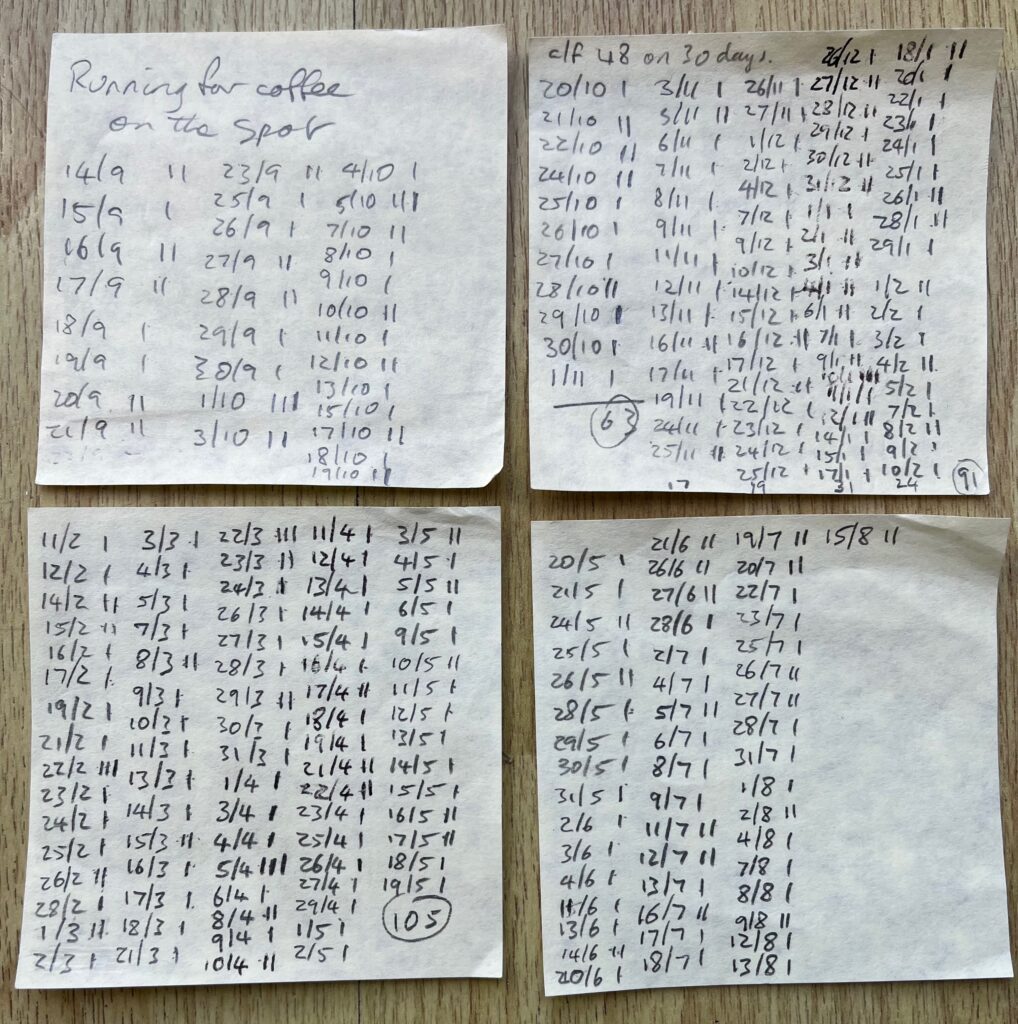 Running for coffee
on the spot
14/9 II
15/9 I
16/9 II
17/9 II
18/9 I
19/9 I
20/9 II
21/9 II
23/9 II
25/9 I
26/9 I
27/9 II
28/9 II
29/9 I
30/9 I
1/10 III
3/10 II
4/10 I
5/10 III
7/10 II
8/10 I
9/10 I
10/10 II
11/10 I
12/10 II
13/10 I
15/10 I
17/10 II
18/10 I
19/10 II
c/f 48 on 30 days.
20/10 I
21/10 II
22/10 II
24/10 II
25/10 I
26/10 I
27/10 I
28/10 II
29/10 I
30/10 I
1/11 I
63
3/11 I
5/11 II
6/11 I
7/11 I
8/11 I
9/11 I
11/11 I
12/11 I
13/11 I
16/11 II
17/11 I
19/11 I
24/11 I
25/11 II
17
26/11 I
27/11 I
1/12 I
2/12 I
4/12 I
7/12 I
9/12 I
10/12 I
14/12 I
15/12 I
16/12 II
17/12 I
21/12 II
22/12 I
23/12 I
24/12 I
25/12 I
19
26/12 I
27/12 II
29/12 I
30/12 II
31/12 II
1/1 I
2/1 II
3/1 II
6/1 II
7/1 I
9/1 II
12/1 II
14/1 I
15/1 I
17/1 I
31
18/1 II
20/1 I
22/1 I
23/1 I
24/1 I
25/1 I
26/1 II
28/1 II
29/1 I
1/2 II
2/2 I
3/2 I
4/2 II
5/2 I
7/2 I
8/2 II
9/2 I
10/2 I
24
91
11/2 I
12/2 I
14/2 II
15/2 II
16/2 I
17/2 I
19/2 I
21/2 I
22/2 III
23/2 I
24/2 I
25/2 I
26/2 II
28/2 I
1/3 II
2/3 I
3/3 I
4/3 I
5/3 I
7/3 I
8/3 II
9/3 I
10/3 I
11/3 I
13/3 I
14/3 I
15/3 II
16/3 I
17/3 I
18/3 I
21/3 I
22/3 III
23/3 II
24/3 I
26/3 I
27/3 I
28/3 I
29/3 II
30/3 I
31/3 I
1/4 I
3/4 I
4/4 I
5/4 III
6/4 I
8/4 II
9/4 I
10/4 II
11/4 I
12/4 I
13/4 I
14/4 I
15/4 I
16/4 I
17/4 II
18/4 I
19/4 I
21/4 II
22/4 II
23/4 I
25/4 I
26/4 I
27/4 I
29/4 I
1/5 I
2/5 I
3/5 II
4/5 I
5/5 II
6/5 I
9/5 I
10/5 II
11/5 I
12/5 I
13/5 I
14/5 I
15/5 I
16/5 II
17/5 II
18/5 I
19/5 I
105
20/5 I
21/5 I
24/5 II
25/5 I
26/5 II
28/5 I
29/5 I
30/5 I
31/5 I
2/6 I
3/6 I
4/6 I
11/6 I
13/6 I
14/6 II
20/6 I
21/6 II
26/6 II
27/6 II
28/6 I
2/7 I
4/7 I
5/7 II
6/7 I
8/7 I
9/7 I
11/7 II
12/7 II
13/7 I
16/7 II
17/7 I
18/7 I
19/7 II
20/7 II
22/7 I
23/7 I
25/7 I
26/7 II
27/7 II
28/7 I
31/7 I
1/8 I
2/8 II
4/8 I
7/8 I
8/8 I
9/8 II
12/8 I
13/8 I
15/8 II